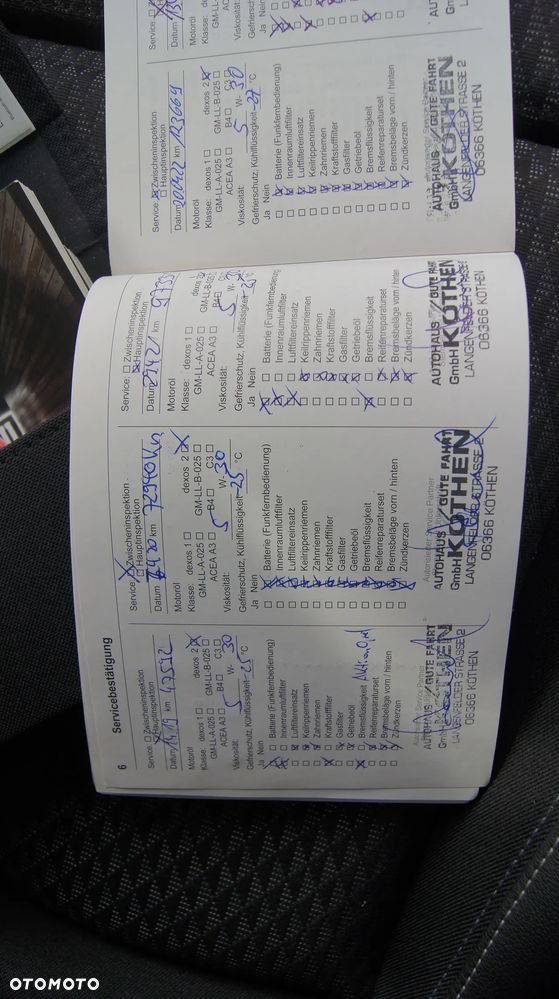 6
Servicebestätigung
Service: ☐ Zwischeninspektion
☒ Hauptinspektion
km 47512
Motoröl
Klasse: dexos 1 ☐ dexos 2 ☒
GM-LL-A-025 ☐ GM-LL-B-025 ☐
ACEA A3 ☐ B4 ☐ C3 ☐
Viskosität: 5 W- 30
Gefrierschutz, Kühlflüssigkeit -25 °C
Ja Nein
Batterie (Funkfernbedienung)
Innenraumluftfilter
Luftfiltereinsatz
Keilrippenriemen
Zahnriemen
Kraftstofffilter
Gasfilter
Getriebeöl
Bremsflüssigkeit
Reifenreparaturset
Bremsbeläge vorn / hinten
Zündkerzen
Autorisierter Service Partner
AUTOHAUS GUTE FAHRT
GmbH
LANGENFELDER STRASSE 2
06366 KÖTHEN
Service: ☒ Zwischeninspektion
☐ Hauptinspektion
Datum km 72940 km
Motoröl
Klasse: dexos 1 ☐ dexos 2 ☒
GM-LL-A-025 ☐ GM-LL-B-025 ☐
ACEA A3 ☐ B4 ☐ C3 ☐
Viskosität: 5 W- 30
Gefrierschutz, Kühlflüssigkeit -25 °C
Ja Nein
Batterie (Funkfernbedienung)
Innenraumluftfilter
Luftfiltereinsatz
Keilrippenriemen
Zahnriemen
Kraftstofffilter
Gasfilter
Getriebeöl
Bremsflüssigkeit
Reifenreparaturset
Bremsbeläge vorn / hinten
Zündkerzen
Autorisierter Service Partner
AUTOHAUS GUTE FAHRT
GmbH KÖTHEN
LANGENFELDER STRASSE 2
06366 KÖTHEN
Service: ☐ Zwischeninspektion
☒ Hauptinspektion
Datum km
Motoröl
Klasse: dexos 1 ☐ dexos
GM-LL-A-025 ☐ GM-LL-B-025
ACEA A3 ☐ B4 ☐
Viskosität: 5 W-
Gefrierschutz, Kühlflüssigkeit °C
Ja Nein
Batterie (Funkfernbedienung)
Innenraumluftfilter
Luftfiltereinsatz
Keilrippenriemen
Zahnriemen
Kraftstofffilter
Gasfilter
Getriebeöl
Bremsflüssigkeit
Reifenreparaturset
Bremsbeläge vorn / hinten
Zündkerzen
AUTOHAUS GUTE FAHRT
GmbH KÖTHEN
LANGENFELDER STRASSE
06366 KÖTHEN
Service: ☒ Zwischeninspektion
☐ Hauptinspektion
Datum km 123669
Motoröl
Klasse: dexos 1 ☐ dexos 2 ☒
GM-LL-A-025 ☐ GM-LL-B-025 ☐
ACEA A3 ☐ B4 ☐ C3 ☐
Viskosität: 5 W- 30
Gefrierschutz, Kühlflüssigkeit -27 °C
Ja Nein
Batterie (Funkfernbedienung)
Innenraumluftfilter
Luftfiltereinsatz
Keilrippenriemen
Zahnriemen
Kraftstofffilter
Gasfilter
Getriebeöl
Bremsflüssigkeit
Reifenreparaturset
Bremsbeläge vorn / hinten
Zündkerzen
AUTOHAUS GUTE FAHRT
GmbH KÖTHEN
LANGENFELDER STRASSE 2
06366 KÖTHEN
Service:
Datum
Motoröl
Klasse:
GM-LL-A
ACEA
Viskosität
Gefrierschutz
Ja Nein
OTOMOTO